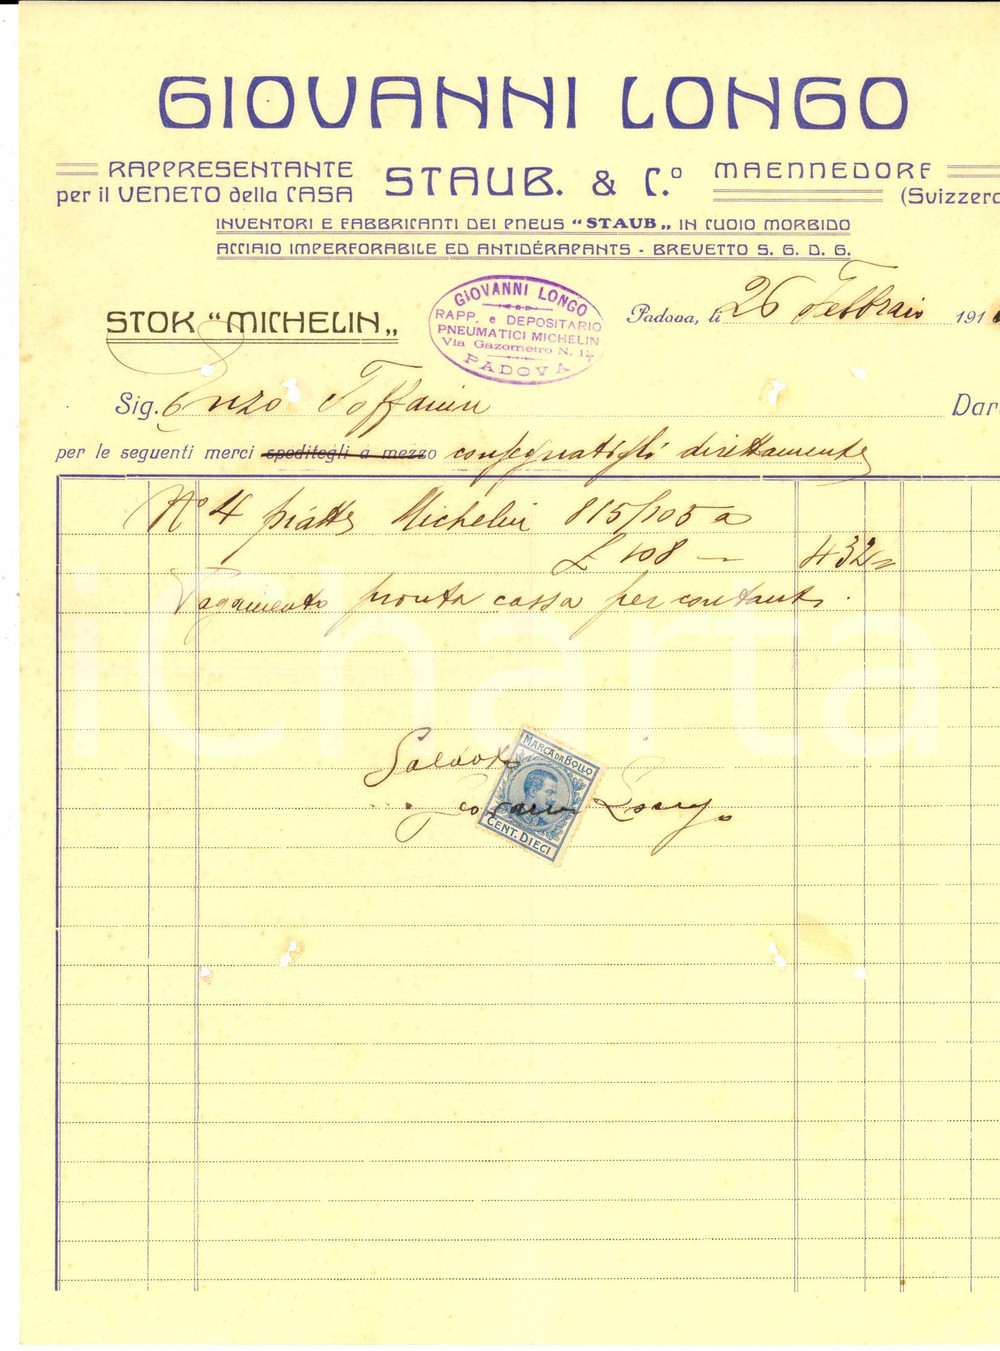 GIOVANNI LONGO
RAPPRESENTANTE
per il VENETO della CASA
STAUB. & C.º
MAENNEDORF
(Svizzera
INVENTORI E FABBRICANTI DEI PNEUS "STAUB„ IN CUOIO MORBIDO
ACCIAIO IMPERFORABILE ED ANTIDÉRAPANTS - BREVETTO S. G. D. G.
STOK "MICHELIN„
GIOVANNI LONGO
RAPP. e DEPOSITARIO
PNEUMATICI MICHELIN
Via Gazometro N. 14
PADOVA
Padova, li 26 Febbraio 191
Sig. Enzo Toffanin
Dar
per le seguenti merci speditegli a mezzo consegnatigli direttamente
Nº 4 piatte Michelin 815/105 a
£ 108 — 432
Pagamento pronta cassa per contanti.
Saldato
Giovanni Longo
MARCA DA BOLLO
CENT. DIECI
iCharta